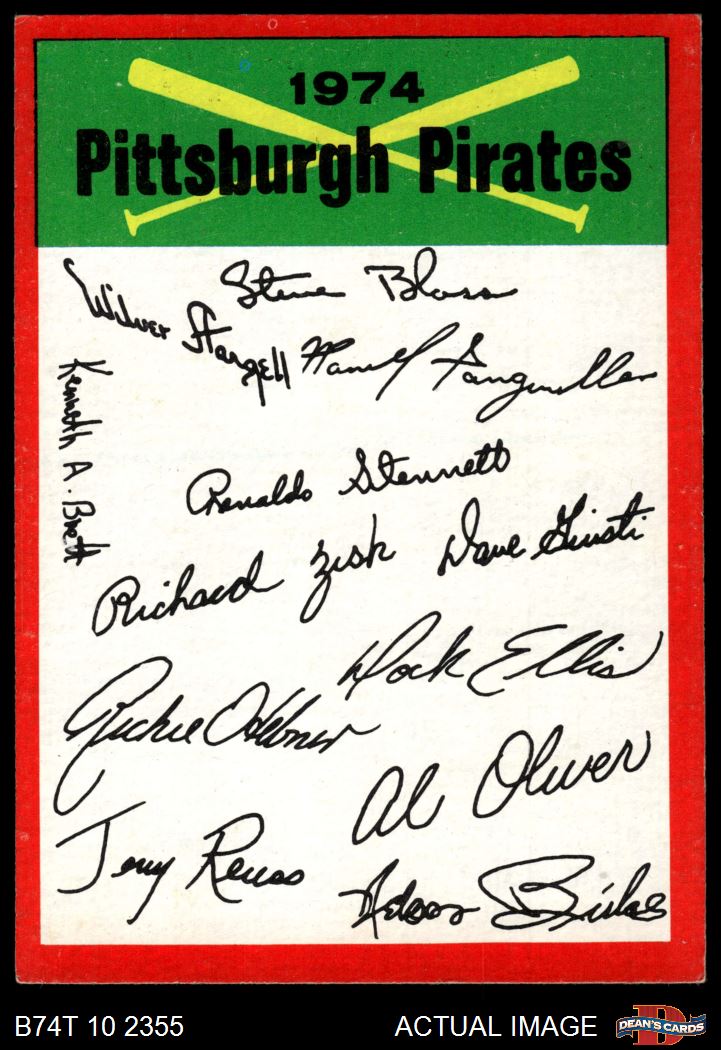 1974
Pittsburgh Pirates
Steve Blass
Wilver Stargell
Manuel Sanguillen
Kenneth A. Brett
Renaldo Stennett
Richard Zisk
Dave Giusti
Dock Ellis
Richie Hebner
Al Oliver
Jerry Reuss
Nelson Briles
B74T 10 2355
ACTUAL IMAGE
D
DEAN'S CARDS